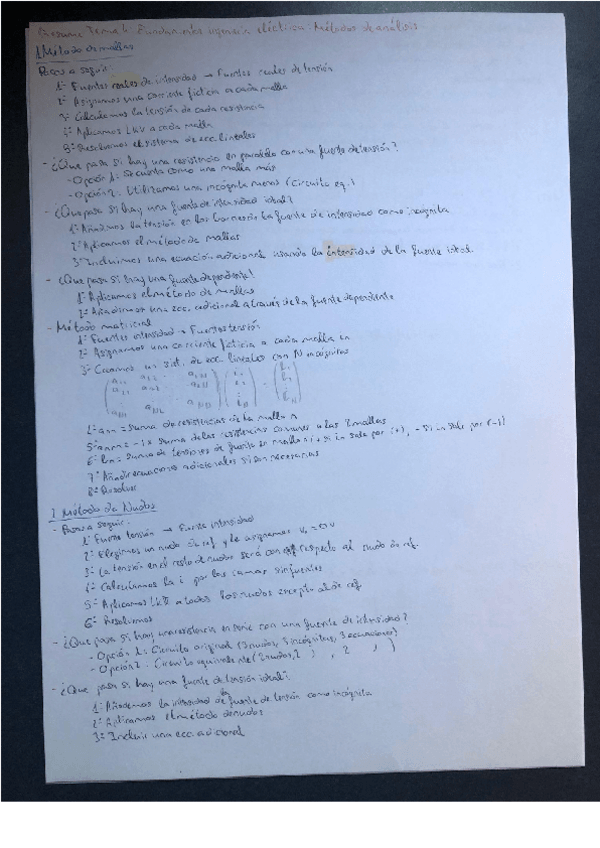 Resumen Tema 4: Fundamentos ingeniería eléctrica: Métodos de análisis
1. Método de mallas
Pasos a seguir:
1º Fuentes reales de intensidad → Fuentes reales de tensión
2º Asignamos una corriente ficticia a cada malla
3º Calculamos la tensión de cada resistencia
4º Aplicamos LKV a cada malla
5º Resolvemos el sistema de ecc. lineales
- ¿Que pasa si hay una resistencia en paralelo con una fuente de tensión?
- Opción 1: Se cuenta como una malla más
- Opción 2: Utilizamos una incógnita menos (circuito eq.)
- ¿Que pasa si hay una fuente de intensidad ideal?
1º Añadimos la tensión en los bornes de la fuente de intensidad como incógnita
2º Aplicamos el método de mallas
3º Incluimos una ecuación adicional usando la intensidad de la fuente ideal.
- ¿Que pasa si hay una fuente dependiente?
1º Aplicamos el método de mallas
2º Añadimos una ecc. adicional a través de la fuente dependiente
- Método matricial
1º Fuentes intensidad → Fuentes tensión
2º Asignamos una corriente ficticia a cada malla in
3º Creamos un sist. de ecc. lineales con N incógnitas
4º ann = suma de resistencias de la malla n
5º anm = -1 x suma de las resistencias comunes a las 2 mallas
6º bn = suma de tensiones de fuente en malla n (+ si in sale por (+), - si in sale por (-))
7º Añadir ecuaciones adicionales si son necesarias
8º Resolver
2. Método de Nudos
- Pasos a seguir:
1º Fuente tensión → Fuente intensidad
2º Elegimos un nudo de ref. y le asignamos V0 = 0 V
3º La tensión en el resto de nudos será con respecto al nudo de ref.
4º Calculamos la i por las ramas sin fuentes
5º Aplicamos LKI a todos los nudos excepto al de ref
6º Resolvemos
- ¿Que pasa si hay una resistencia en serie con una fuente de intensidad?
- Opción 1: Circuito original (3 nudos, 3 incógnitas, 3 ecuaciones)
- Opción 2: Circuito equivalente (2 nudos, 2 " , 2 " )
- ¿Que pasa si hay una fuente de tensión ideal?
1º Añadimos la intensidad de la fuente de tensión como incógnita
2º Aplicamos el método de nudos
3º Incluir una ecc. adicional